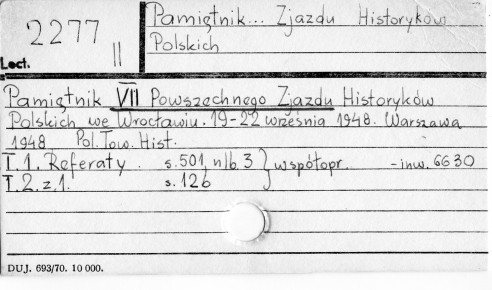 2277 II
Lect.
Pamiętnik... Zjazdu Historyków
Polskich
Pamiętnik VII Powszechnego Zjazdu Historyków
Polskich we Wrocławiu. 19-22 września 1948. Warszawa
1948 Pol. Tow. Hist.
T. 1. Referaty. s. 501, nlb. 3 } współopr. - inw. 6630
T. 2. z. 1. s. 126
DUJ. 693/70. 10 000.